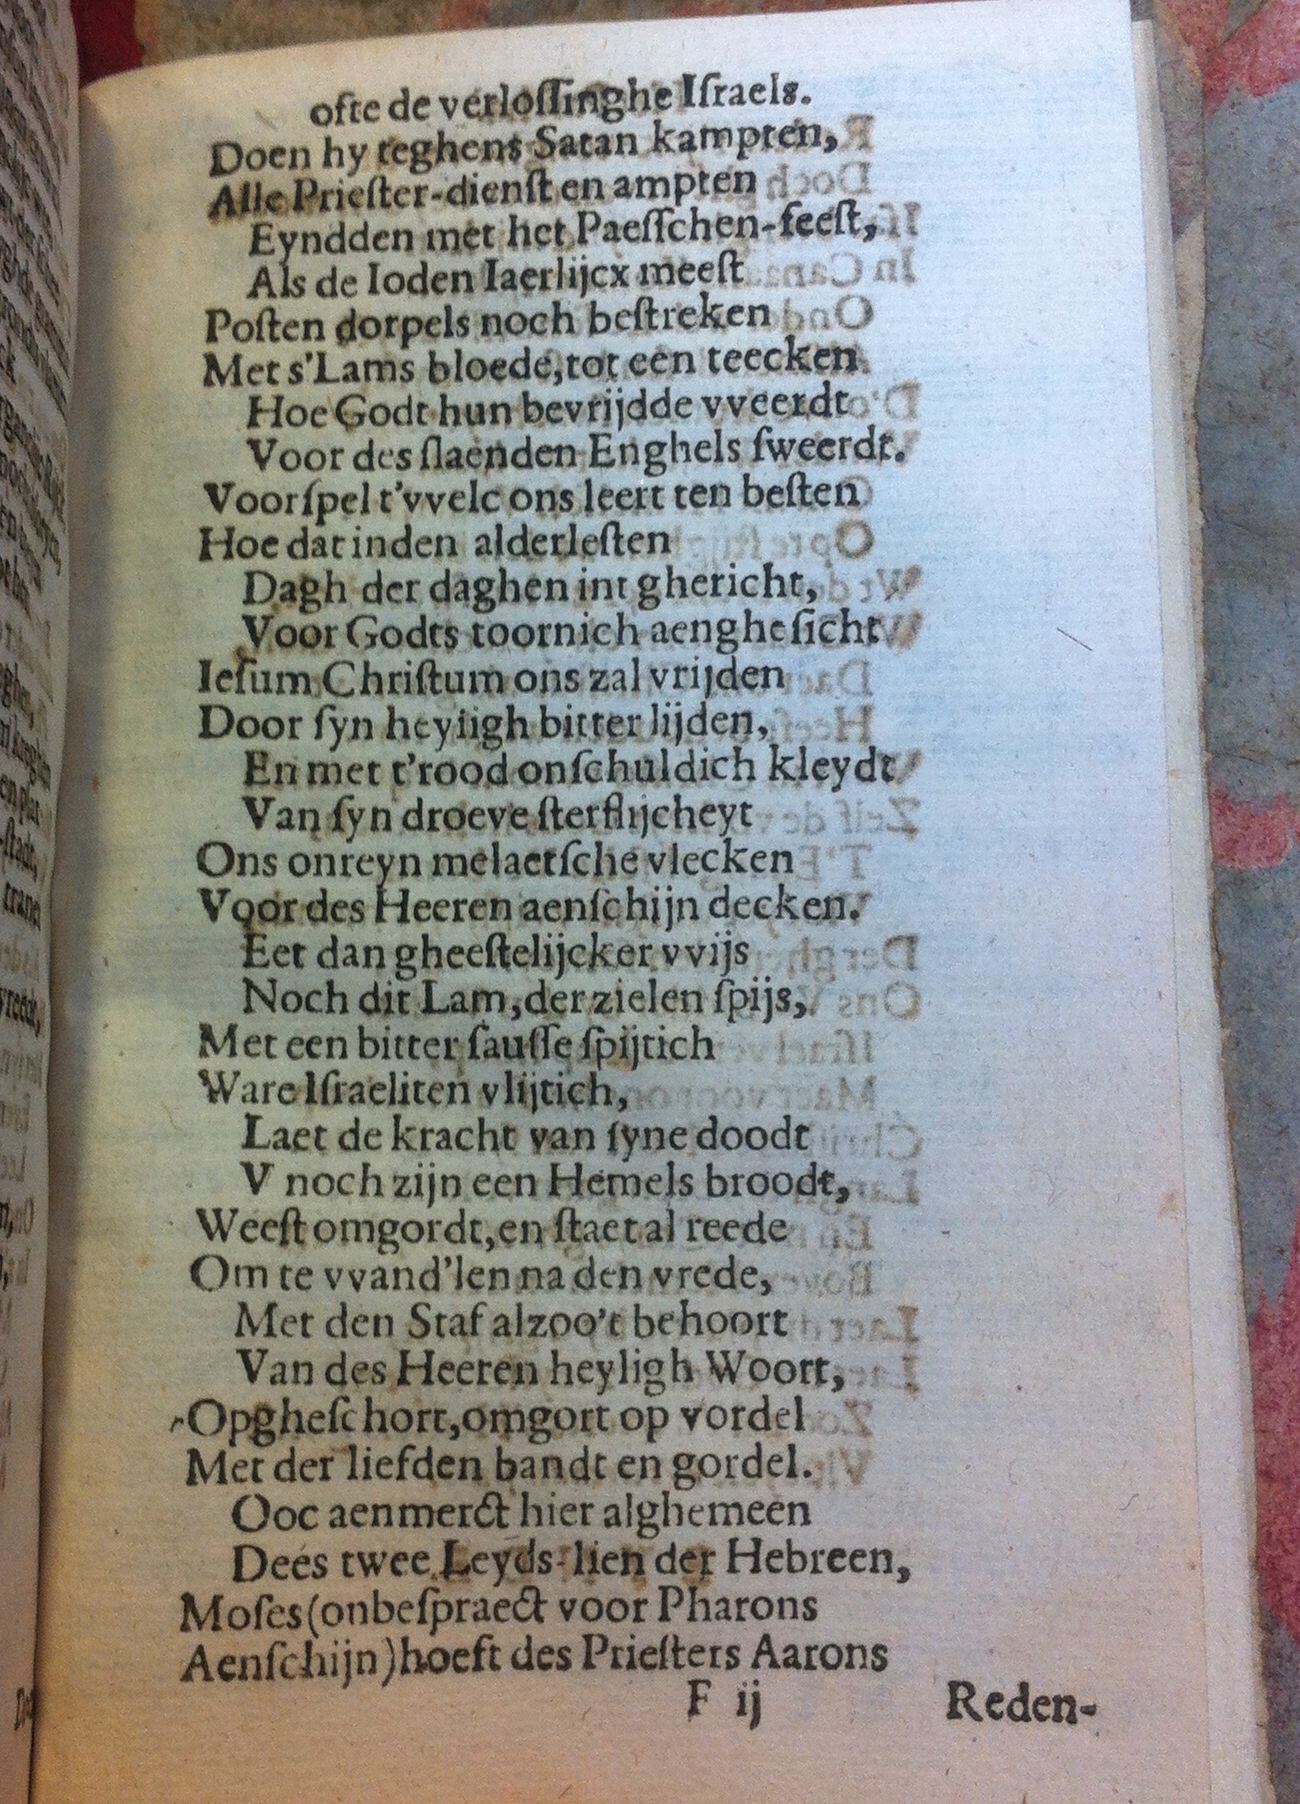 ofte de verlossinghe Israels.
Doen hy teghens Satan kampten,
Alle Priester-dienst en ampten
Eyndden met het Paesschen-feest,
Als de Ioden Iaerlijcx meest
Posten dorpels noch bestreken
Met s'Lams bloede, tot een teecken
Hoe Godt hun bevrijdde vveerdt
Voor des slaenden Enghels sweerdt.
Voorspel t'vvelc ons leert ten besten
Hoe dat inden alderlesten
Dagh der daghen int ghericht,
Voor Godts toornich aenghesicht
Iesum Christum ons zal vrijden
Door syn heyligh bitter lijden,
En met t'rood onschuldich kleydt
Van syn droeve sterflijcheyt
Ons onreyn melaetsche vlecken
Voor des Heeren aenschijn decken.
Eet dan gheestelijcker vvijs
Noch dit Lam, der zielen spijs,
Met een bitter sausse spijtich
Ware Israeliten vlijtich,
Laet de kracht van syne doodt
V noch zijn een Hemels broodt,
Weest omgordt, en staet al reede
Om te vvand'len na den vrede,
Met den Staf alzoo't behoort
Van des Heeren heyligh Woort,
Opgheschort, omgort op vordel
Met der liefden bandt en gordel.
Ooc aenmerct hier alghemeen
Dees twee Leyds-lien der Hebreen,
Moses (onbespraect voor Pharons
Aenschijn) hoeft des Priesters Aarons
F ij Reden-